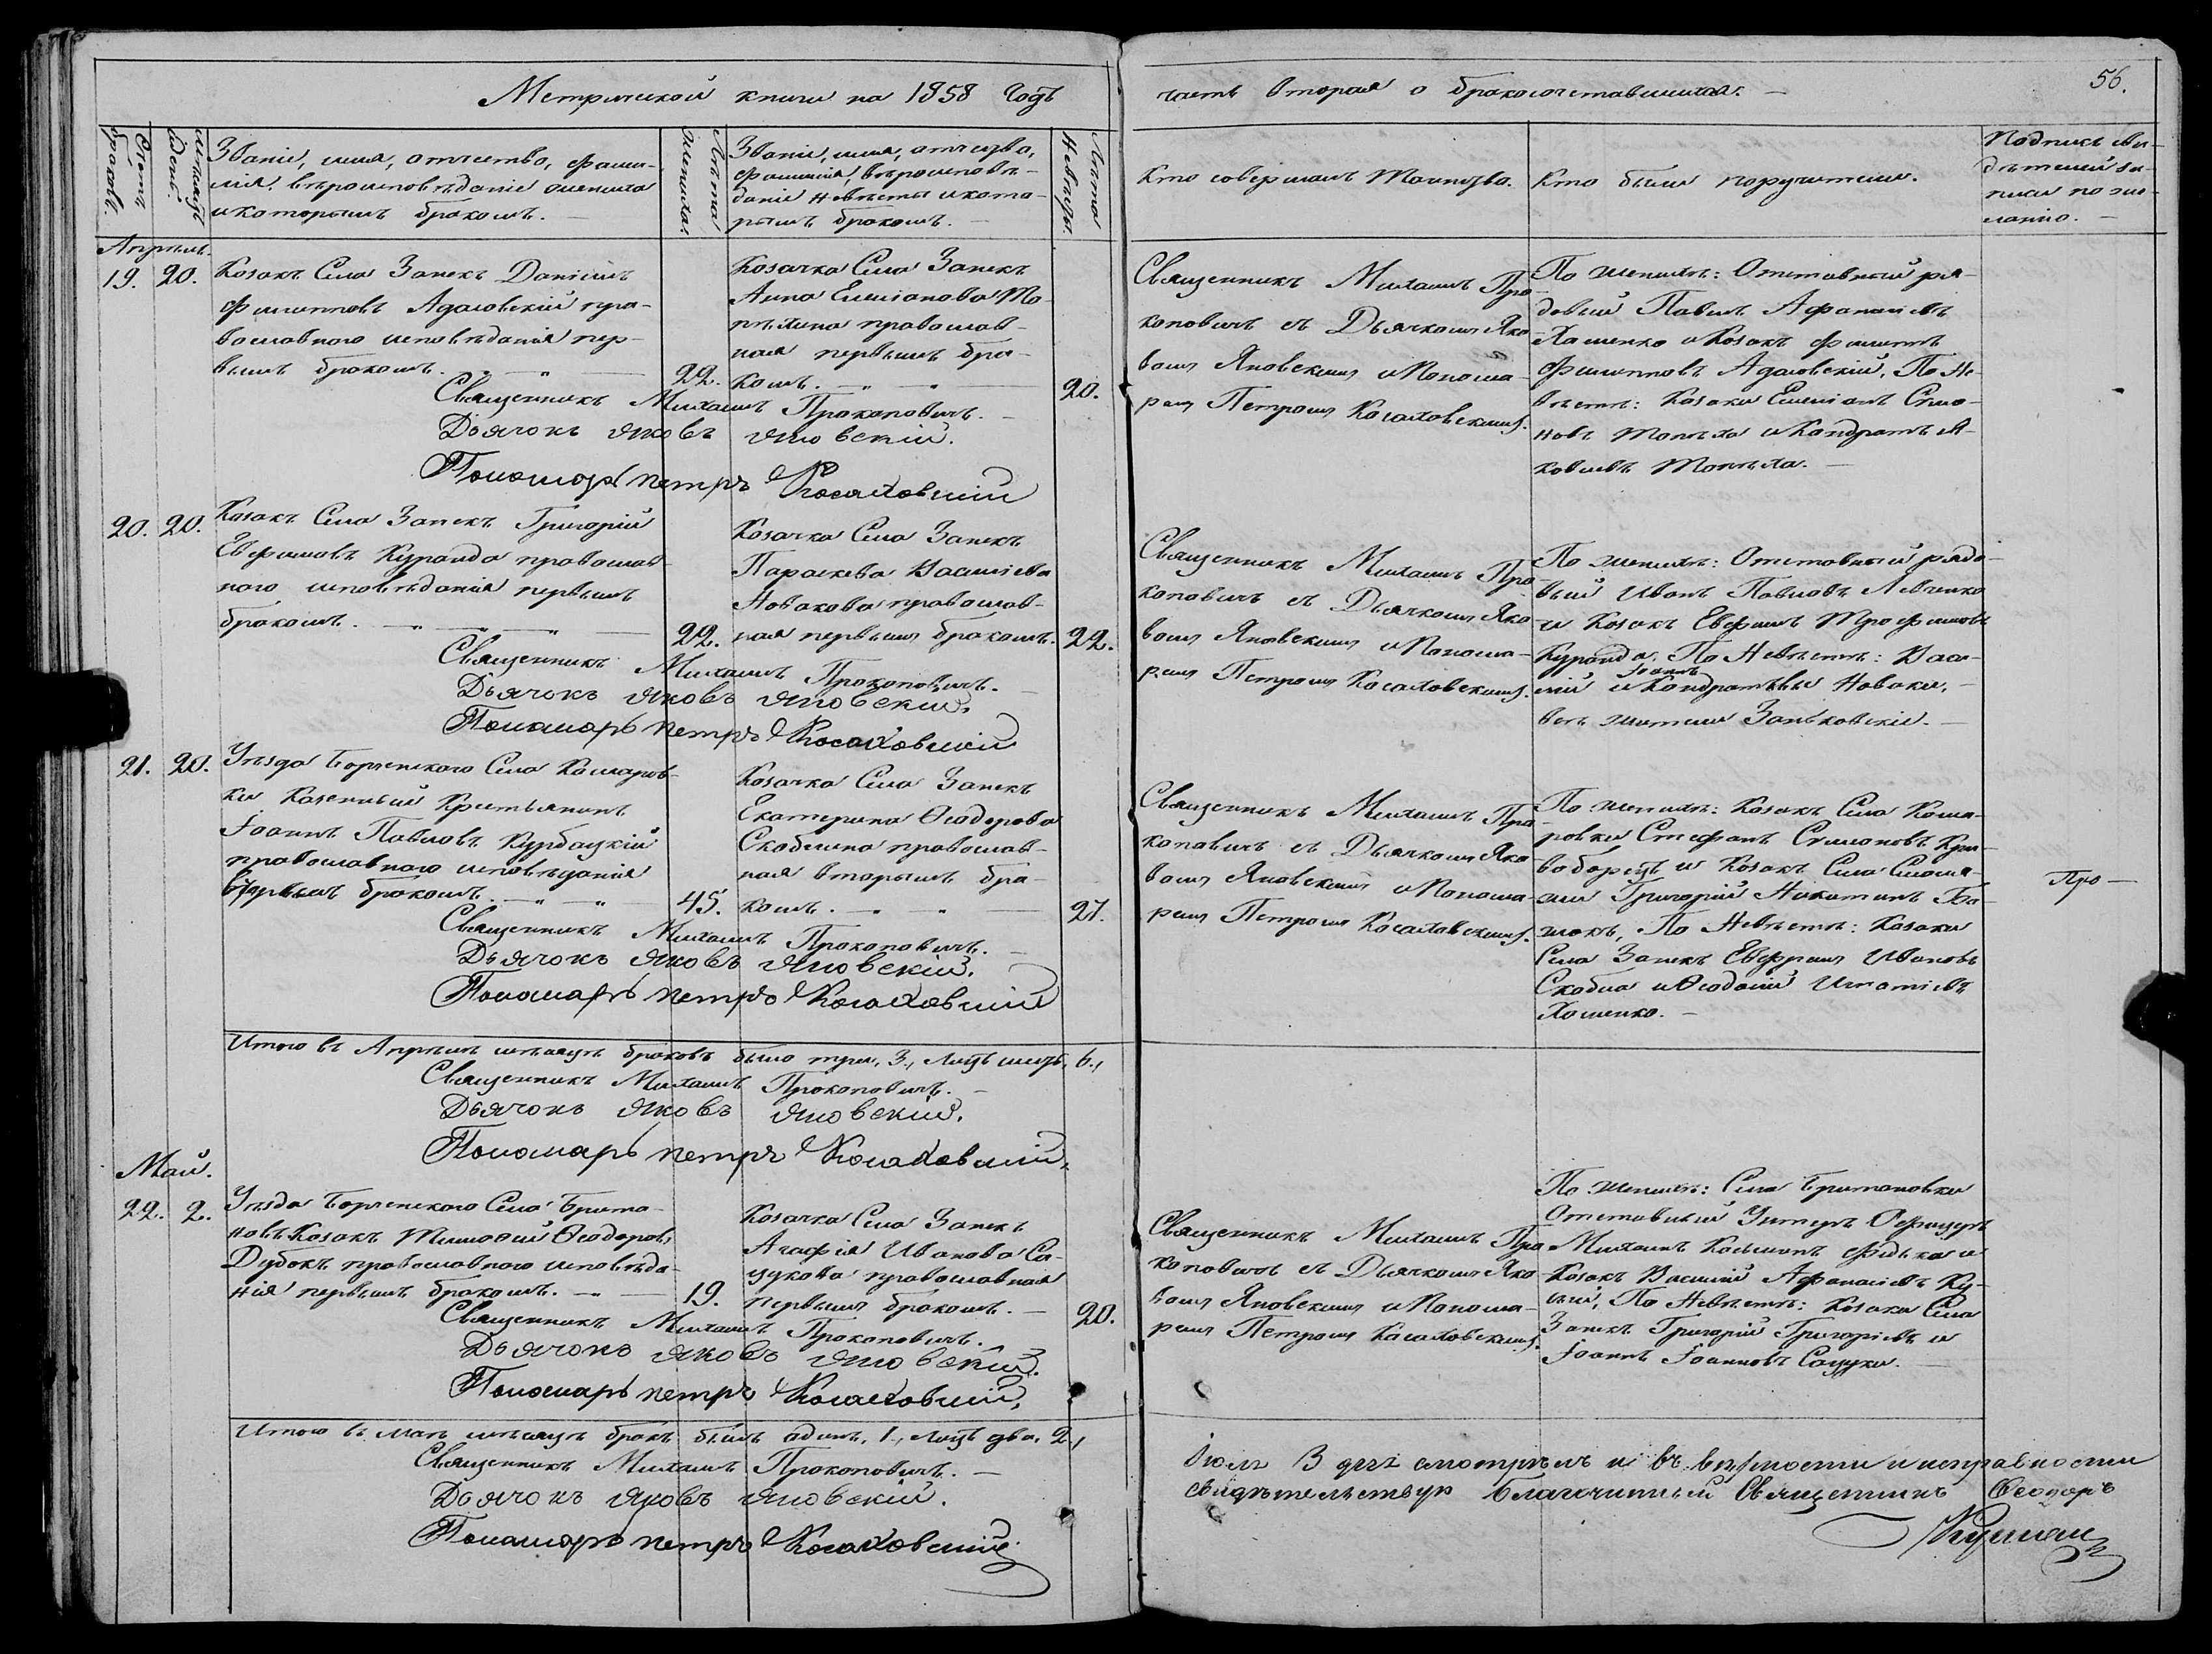 Метрической книги на 1858 годъ
часть вторая о бракосочетавшихся.
56.
Счетъ браковъ.
Мѣсяцъ и день.
Званіе, имя, отчество, фами-
лія, вѣроисповѣданіе жениха
и которымъ бракомъ.
Лѣта жениха.
Званіе, имя, отчество,
фамилія, вѣроисповѣ-
даніе невѣсты и кото-
рымъ бракомъ.
Лѣта невѣсты.
Кто совершалъ таинство.
Кто были поручители.
Подпись сви-
дѣтелей за-
писи по же-
ланію.
Апрѣль.
19. 20.
Козакъ Села Занекъ Даніилъ
Филипповъ Адаловскій пра-
вославного исповѣданія пер-
вымъ бракомъ.
22.
Козачка Села Занекъ
Анна Емеліанова То-
пѣхина православ-
ная первымъ бра-
комъ.
20.
Священникъ Михаилъ Про-
коповичъ съ Дьячкомъ Яко-
вомъ Яновскимъ и Понома-
ремъ Петромъ Косаховскимъ.
По женихѣ: Отставный ря-
довый Павелъ Афанасіевъ
Хоменко и Козакъ Филиппъ
Филипповъ Адаловскій, По Не-
вѣстѣ: Козаки Емеліанъ Симо-
новъ Топѣха и Кондратъ Я-
ковлевъ Топѣха.
Священникъ Михаилъ Прокоповичъ.
Дьячокъ Яковъ Яновскій.
Пономарь Петръ Косаховскій
20. 20.
Козакъ Села Занекъ Григорій
Евфимовъ Куранда православ-
ного исповѣданія первымъ
бракомъ.
22.
Козачка Села Занекъ
Параскева Василіева
Новакова православ-
ная первымъ бракомъ.
22.
Священникъ Михаилъ Про-
коповичъ съ Дьячкомъ Яко-
вомъ Яновскимъ и Понома-
ремъ Петромъ Косаховскимъ.
По женихѣ: Отставный рядо-
вый Иванъ Павловъ Левченко
и Козакъ Евфимъ Трофимовъ
Куранда, По Невѣстѣ: Васи-
лій и Іоаннъ Кондратьевы Новаки,
всѣ жители Заньковскіе.
Священникъ Михаилъ Прокоповичъ.
Дьячокъ Яковъ Яновскій.
Пономарь Петръ Косаховскій
21. 20.
Уѣзда Борзенского Села Комаров-
ки Казенный Крестьянинъ
Іоаннъ Павловъ Курбацкій
православного исповѣданія
бракомъ.
45.
Козачка Села Занекъ
Екатерина Ѳеодорова
Скобелина православ-
ная вторымъ бра-
комъ.
27.
Священникъ Михаилъ Про-
коповичъ съ Дьячкомъ Яко-
вомъ Яновскимъ и Понома-
ремъ Петромъ Косаховскимъ.
По женихѣ: Козакъ Села Кома-
ровки Стефанъ Симоновъ Кри-
воборецъ и Козакъ Села
Григорій Никитинъ
По Невѣстѣ: Козаки
Села Занекъ Евфремъ Ивановъ
Скобла и Ѳеодосій Игнатіевъ
Хоменко.
Про—
Священникъ Михаилъ Прокоповичъ.
Дьячокъ Яковъ Яновскій.
Пономарь Петръ Косаховскій
Итого въ Апрѣлѣ мѣсяцѣ браковъ было три, 3., лицъ шесть, 6.,
Священникъ Михаилъ Прокоповичъ.
Дьячокъ Яковъ Яновскій.
Пономарь Петръ Косаховскій.
Май.
22. 2.
Уѣзда Борзенского Села Брита-
новъ Козакъ Тимоѳей Ѳеодоровъ
Дубокъ православного исповѣда-
нія первымъ бракомъ.
19.
Козачка Села Занекъ
Агафія Иванова Са-
цукова православная
первымъ бракомъ.
20.
Священникъ Михаилъ Про-
коповичъ съ Дьячкомъ Яко-
вомъ Яновскимъ и Понома-
ремъ Петромъ Косаховскимъ.
По женихѣ: Села Британовки
Отставный Унтеръ Офицеръ
Михаилъ Косьминъ Фидька и
Козакъ Василій Афанасіевъ Ку-
цій, По Невѣстѣ: Козаки Села
Занекъ Григорій Григоріевъ и
Іоаннъ Іоанновъ Сацуки.
Священникъ Михаилъ Прокоповичъ.
Дьячокъ Яковъ Яновскій.
Пономарь Петръ Косаховскій.
Итого въ Маѣ мѣсяцѣ бракъ былъ одинъ, 1., лицъ два, 2.,
Священникъ Михаилъ Прокоповичъ.
Дьячокъ Яковъ Яновскій.
Пономарь Петръ Косаховскій.
Іюля 3 дня смотрѣлъ и въ вѣрности и исправности
свидѣтельствую Благочинный Священникъ Ѳеодоръ